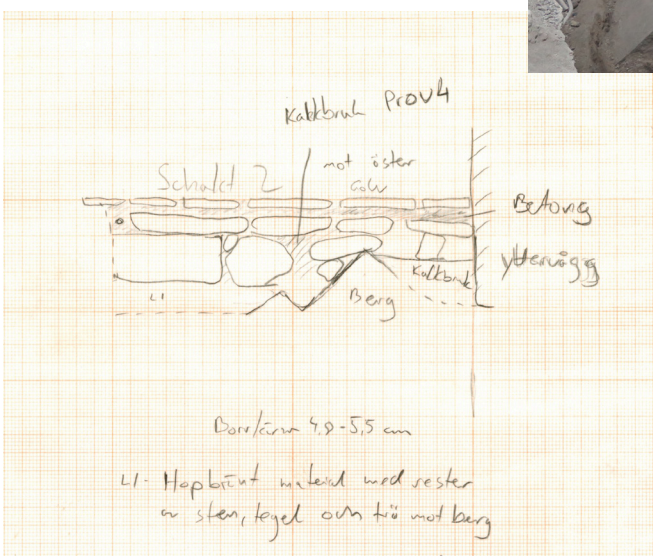 Kalkbruk Prov4
Schakt 2
mot öster
Golv
Betong
Yttervägg
Kalkbruk
L1
Berg
Borrkärna 4,8-5,5 cm
L1- Hopbränt material med rester
av sten, tegel och trä mot berg